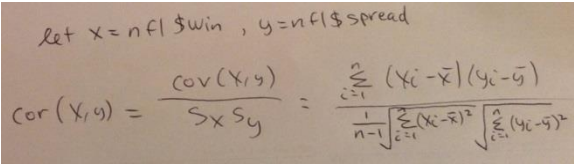 let x = nfl$win , y = nfl$spread
cor(x,y) = cov(x,y) / SxSy = Σ_{i=1}^{n} (xi-x̄)(yi-ȳ) / 1/n-1 √Σ_{i=1}^{n}(xi-x̄)² √Σ_{i=1}^{n}(yi-ȳ)²